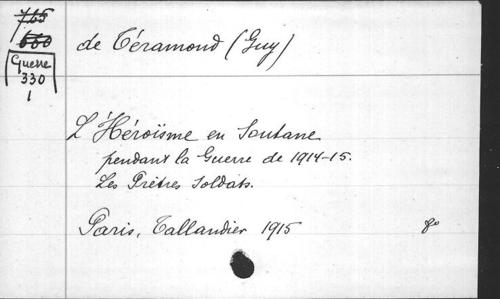 765
660
Guerre
330
1
de Téramond (Guy)
L'Héroïsme en Soutane
pendant la Guerre de 1914-15.
Les Prêtres Soldats.
Paris, Tallandier 1915
8º